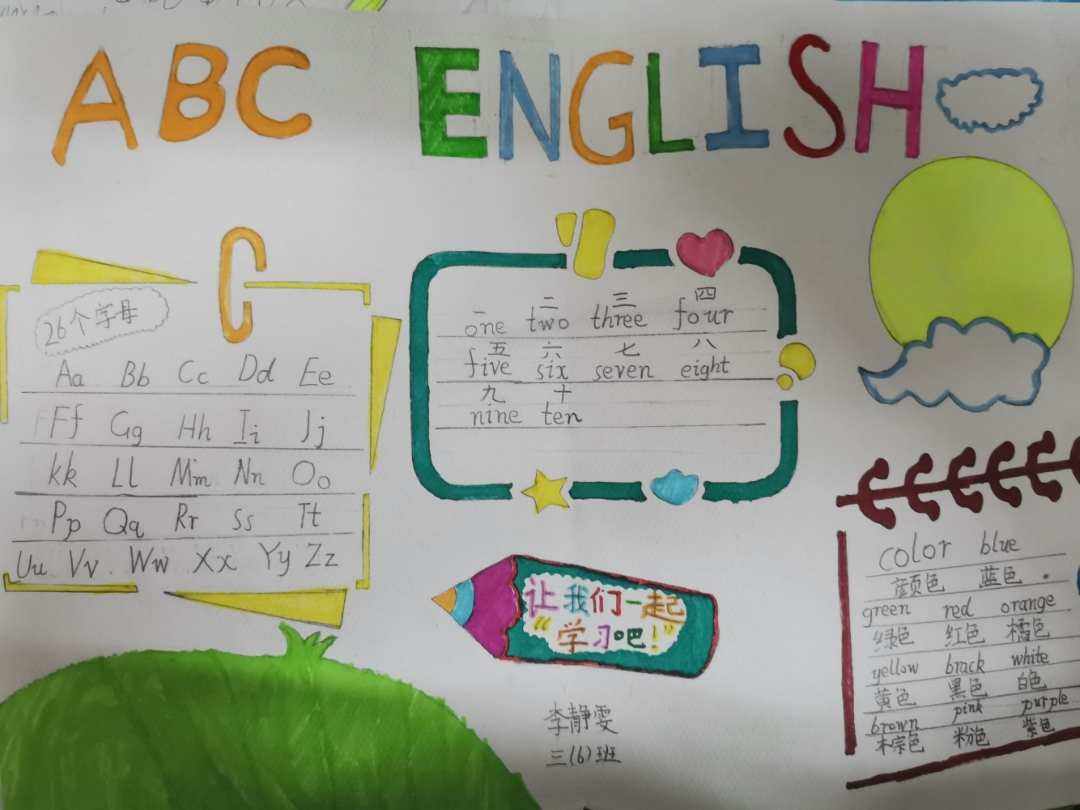 ABC ENGLISH
26个字母
Aa Bb Cc Dd Ee
Ff Gg Hh Ii Jj
kk Ll Mm Nn Oo
Pp Qq Rr Ss Tt
Uu Vv Ww Xx Yy Zz
一 二 三 四
one two three four
五 六 七 八
five six seven eight
九 十
nine ten
让我们一起
“学习吧!”
李静雯
三(6)班
color blue
颜色 蓝色
green red orange
绿色 红色 橘色
yellow brack white
黄色 黑色 白色
brown pink purple
棕色 粉色 紫色